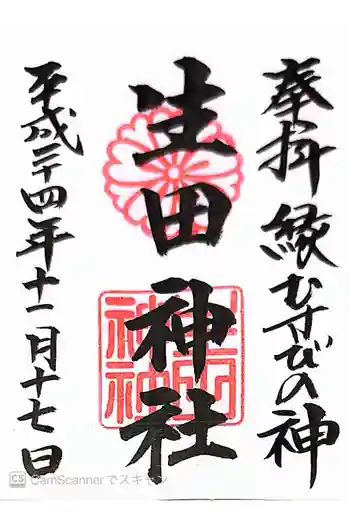 奉拝 縁むすびの神
生田神社
平成二十四年十一月十七日
CamScannerでスキャン